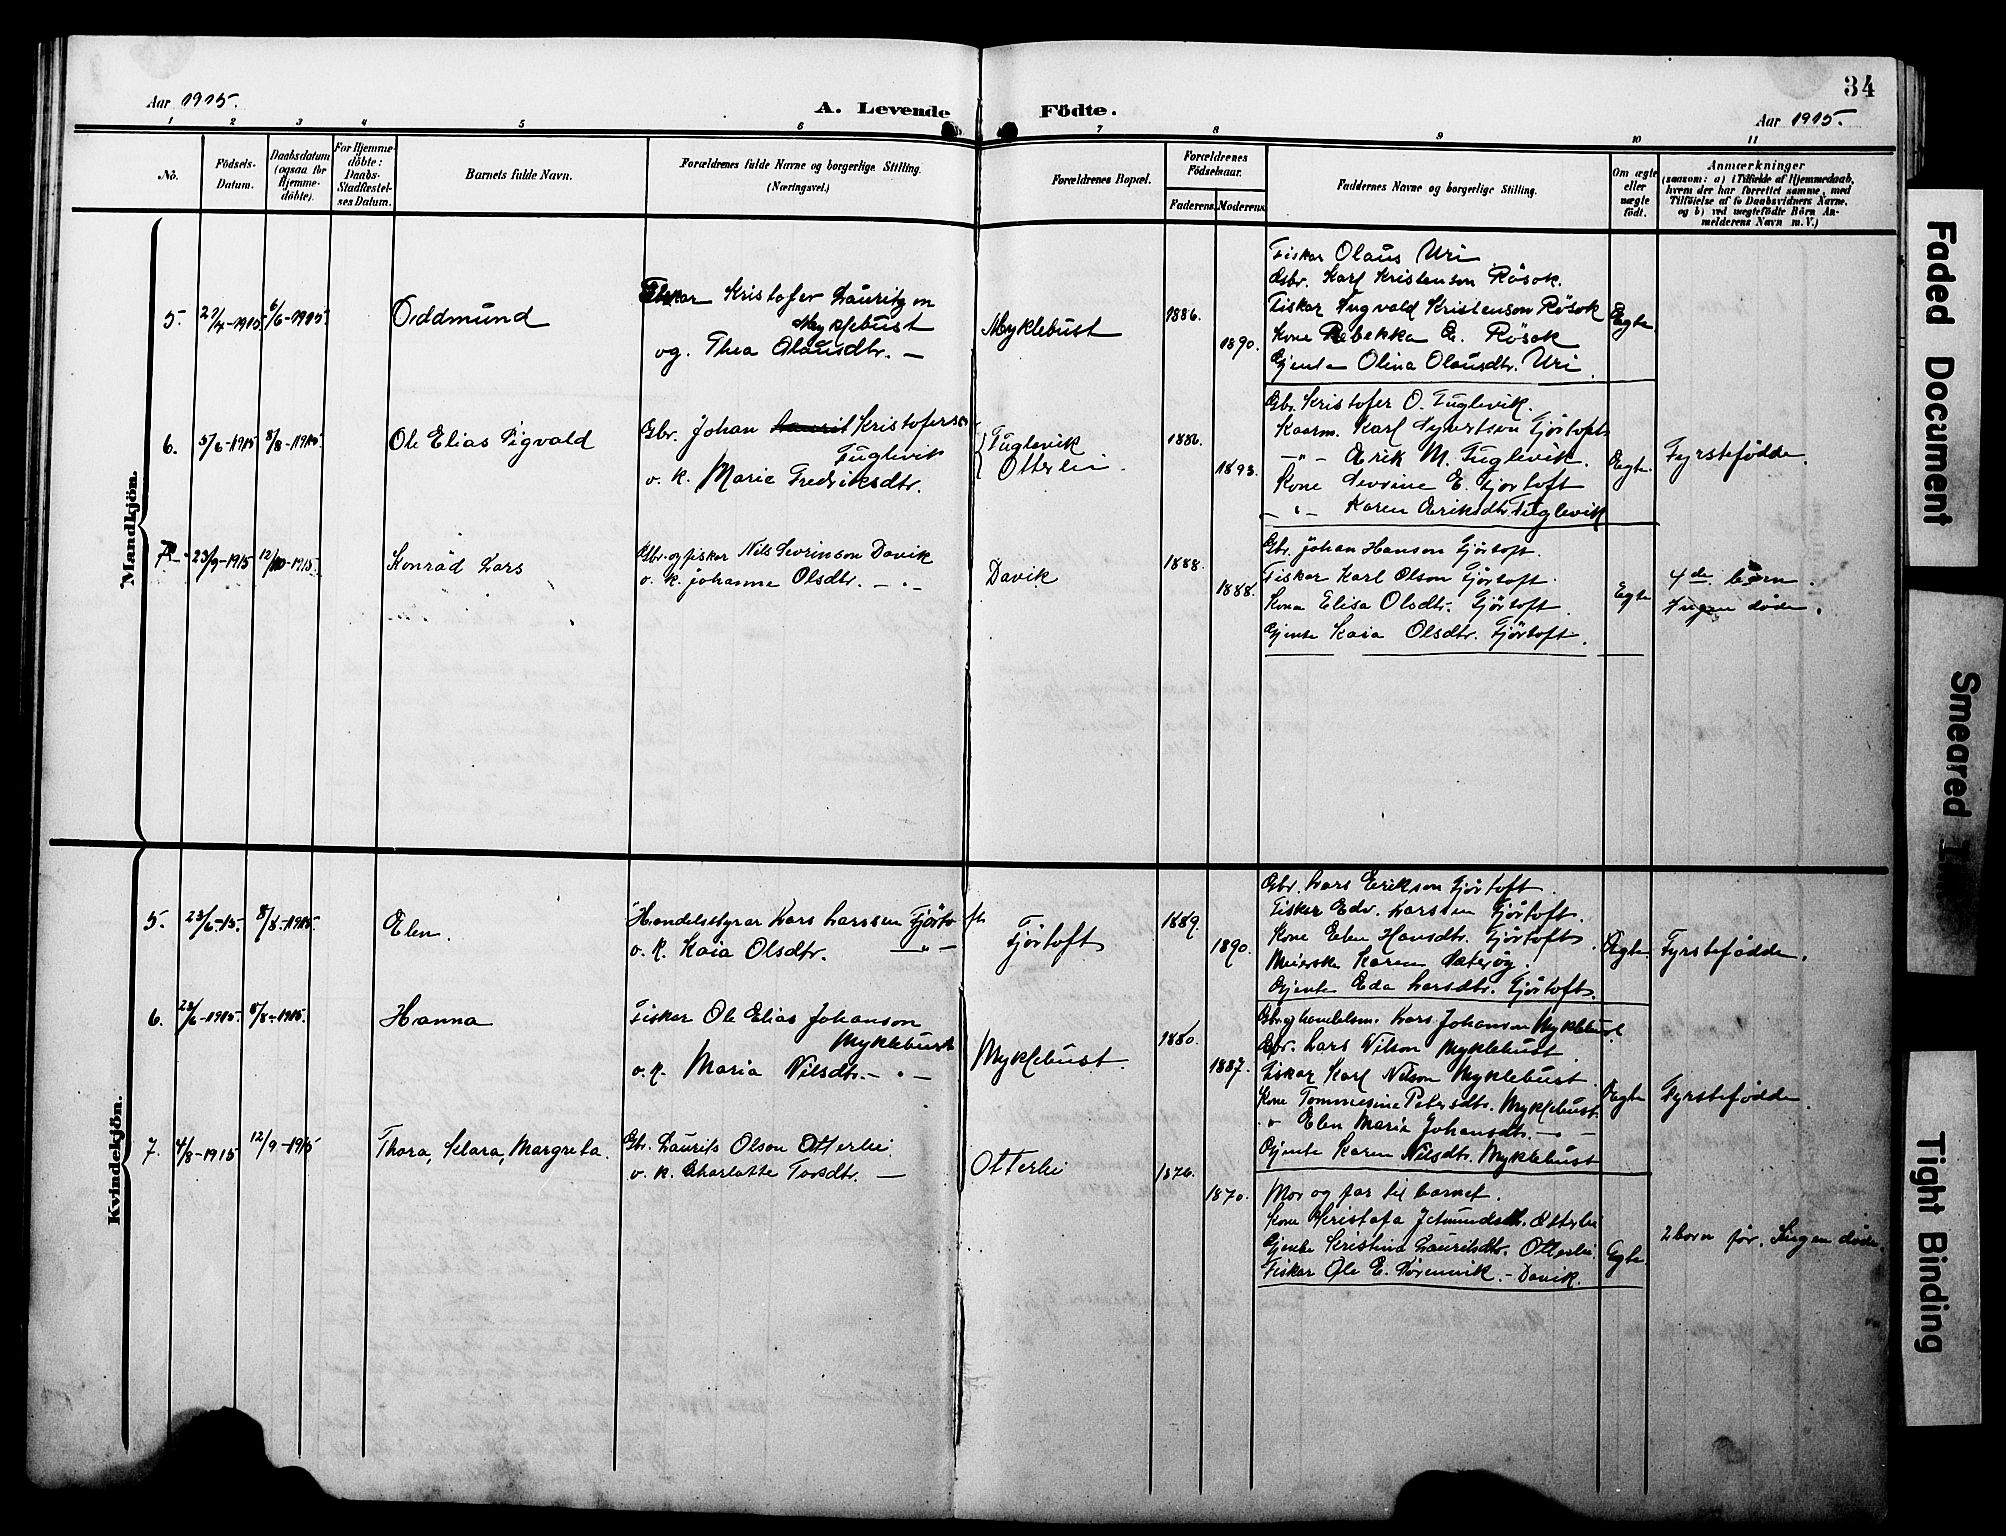 34
Aar 1915.
A. Levende Födte.
Aar 1915.
1 2 3 4 5 6 7 8 9 10 11
No.
Födsels-
Datum.
Daabsdatum
(ogsaa for
Hjemme-
döbte).
For Hjemme-
döbte:
Daabs-
Stadfæstel-
ses Datum.
Barnets fulde Navn.
Forældrenes fulde Navne og borgerlige Stilling.
(Næringsvei.)
Forældrenes Bopæl.
Forældrenes
Födselsaar.
Faderens. Moderens.
Faddernes Navne og borgerlige Stilling.
Om ægte
eller
uægte
födt.
Anmærkninger
(saasom: a) i Tilfælde af Hjemmedaab,
hvem der har forrettet samme, med
Tilföielse af to Daabsvidners Navne,
og b) ved uægtefödte Börn An-
melderens Navn m. V.)
Mandkjön.
5. 6/6-1915. Oddmund
Fiskar Kristofer Lauritzen
Myklebust
og. Thea Olausdtr. —
Myklebust
1886.
1890.
Fiskar Olaus Uri
Gbr. Karl Kristenson Rösok.
Fiskar Ingvald Kristenson Rösok
Kone Rebekka E. Rösok
Gjente Olina Olausdtr. Uri.
Egte
6. 5/6-1915 8/8-1915. Ole Elias Sigvald
Gbr. Johan Laurit Kristofersen
Fuglevik
o. k. Marie Fredriksdtr.
Fuglevik
Otterlei.
1886.
1893.
Gbr. Kristofer O. Fuglevik.
Kaarm. Karl Syvertson Fjörtoft
—"— Erik M. Fuglevik.
Kone Sevrine E. Fjörtoft
—"— Karen Eriksdtr. Fuglevik
Ægte.
Fyrstefödde.
7. 23/9-1915 12/10-1915. Konrad Lars
Gbr. og fiskar Nils Sevrinson Davik
o. k. Johanne Olsdtr. — " —
Davik
1888.
1888.
Gbr. Johan Hanson Fjörtoft.
Fiskar Karl Olson Fjörtoft.
Kona Elisa Olsdtr. Fjörtoft.
Gjente Kaia Olsdtr. Fjörtoft.
Egte
4de börn.
Ingen döde.
Kvindekjön.
5. 23/6-15. 8/8-1915. Elen.
Handelsstyrar Lars Larssen Fjörtoft
o. k. Kaia Olsdtr. —"—
Fjörtoft
1889.
1890.
Gbr. Lars Erikson Fjörtoft.
Fiskar Edv. Larssen Fjörtoft.
Kone Elen Hansdtr. Fjörtoft.
Meierske Karen
Gjente Eda Larsdtr. Fjörtoft.
Ægte
Fyrstefödde.
6. 8/8-1915. Hanna
Fiskar Ole Elias Johanson
Myklebust
o. k. Maria Nilsdtr. — " —
Myklebust.
1880.
1887.
Gbr. og handelsm. Lars Johansen Myklebust.
Gbr. Lars Nilson Myklebust.
Fiskar Karl Nilson Myklebust.
Kone Tommesine Petersdtr. Myklebust.
" Elen Marie Johansdtr. — " —
Gjente Karen Nilsdtr. Myklebust
Ægte
Fyrstefödde.
7. 4/8-1915 12/9-1915 Thora, Klara, Margreta.
Gbr. Laurits Olson Otterlei
o. k. Charlotte Torsdtr. —
Otterlei
1876.
1870.
Mor og far til barnet.
Kone Kristofa Jetmundsdtr. Otterlei
Gjente Kristina Lauritsdtr. Otterlei
Fiskar Ole E. — Davik.
Egte
2 born för. Ingen döde.
Faded Document
Smeared
Tight Binding